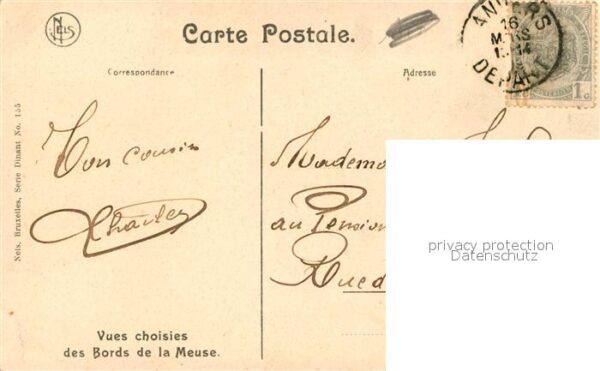 NELS
Carte Postale.
ANVERS
16
MARS
DEPART
1c
Correspondance
Adresse
Nels, Bruxelles, Serie Dinant No. 155
Ton cousin
Charles
Mademo
au Pension
Rue d
privacy protection
Datenschutz
Vues choisies
des Bords de la Meuse.